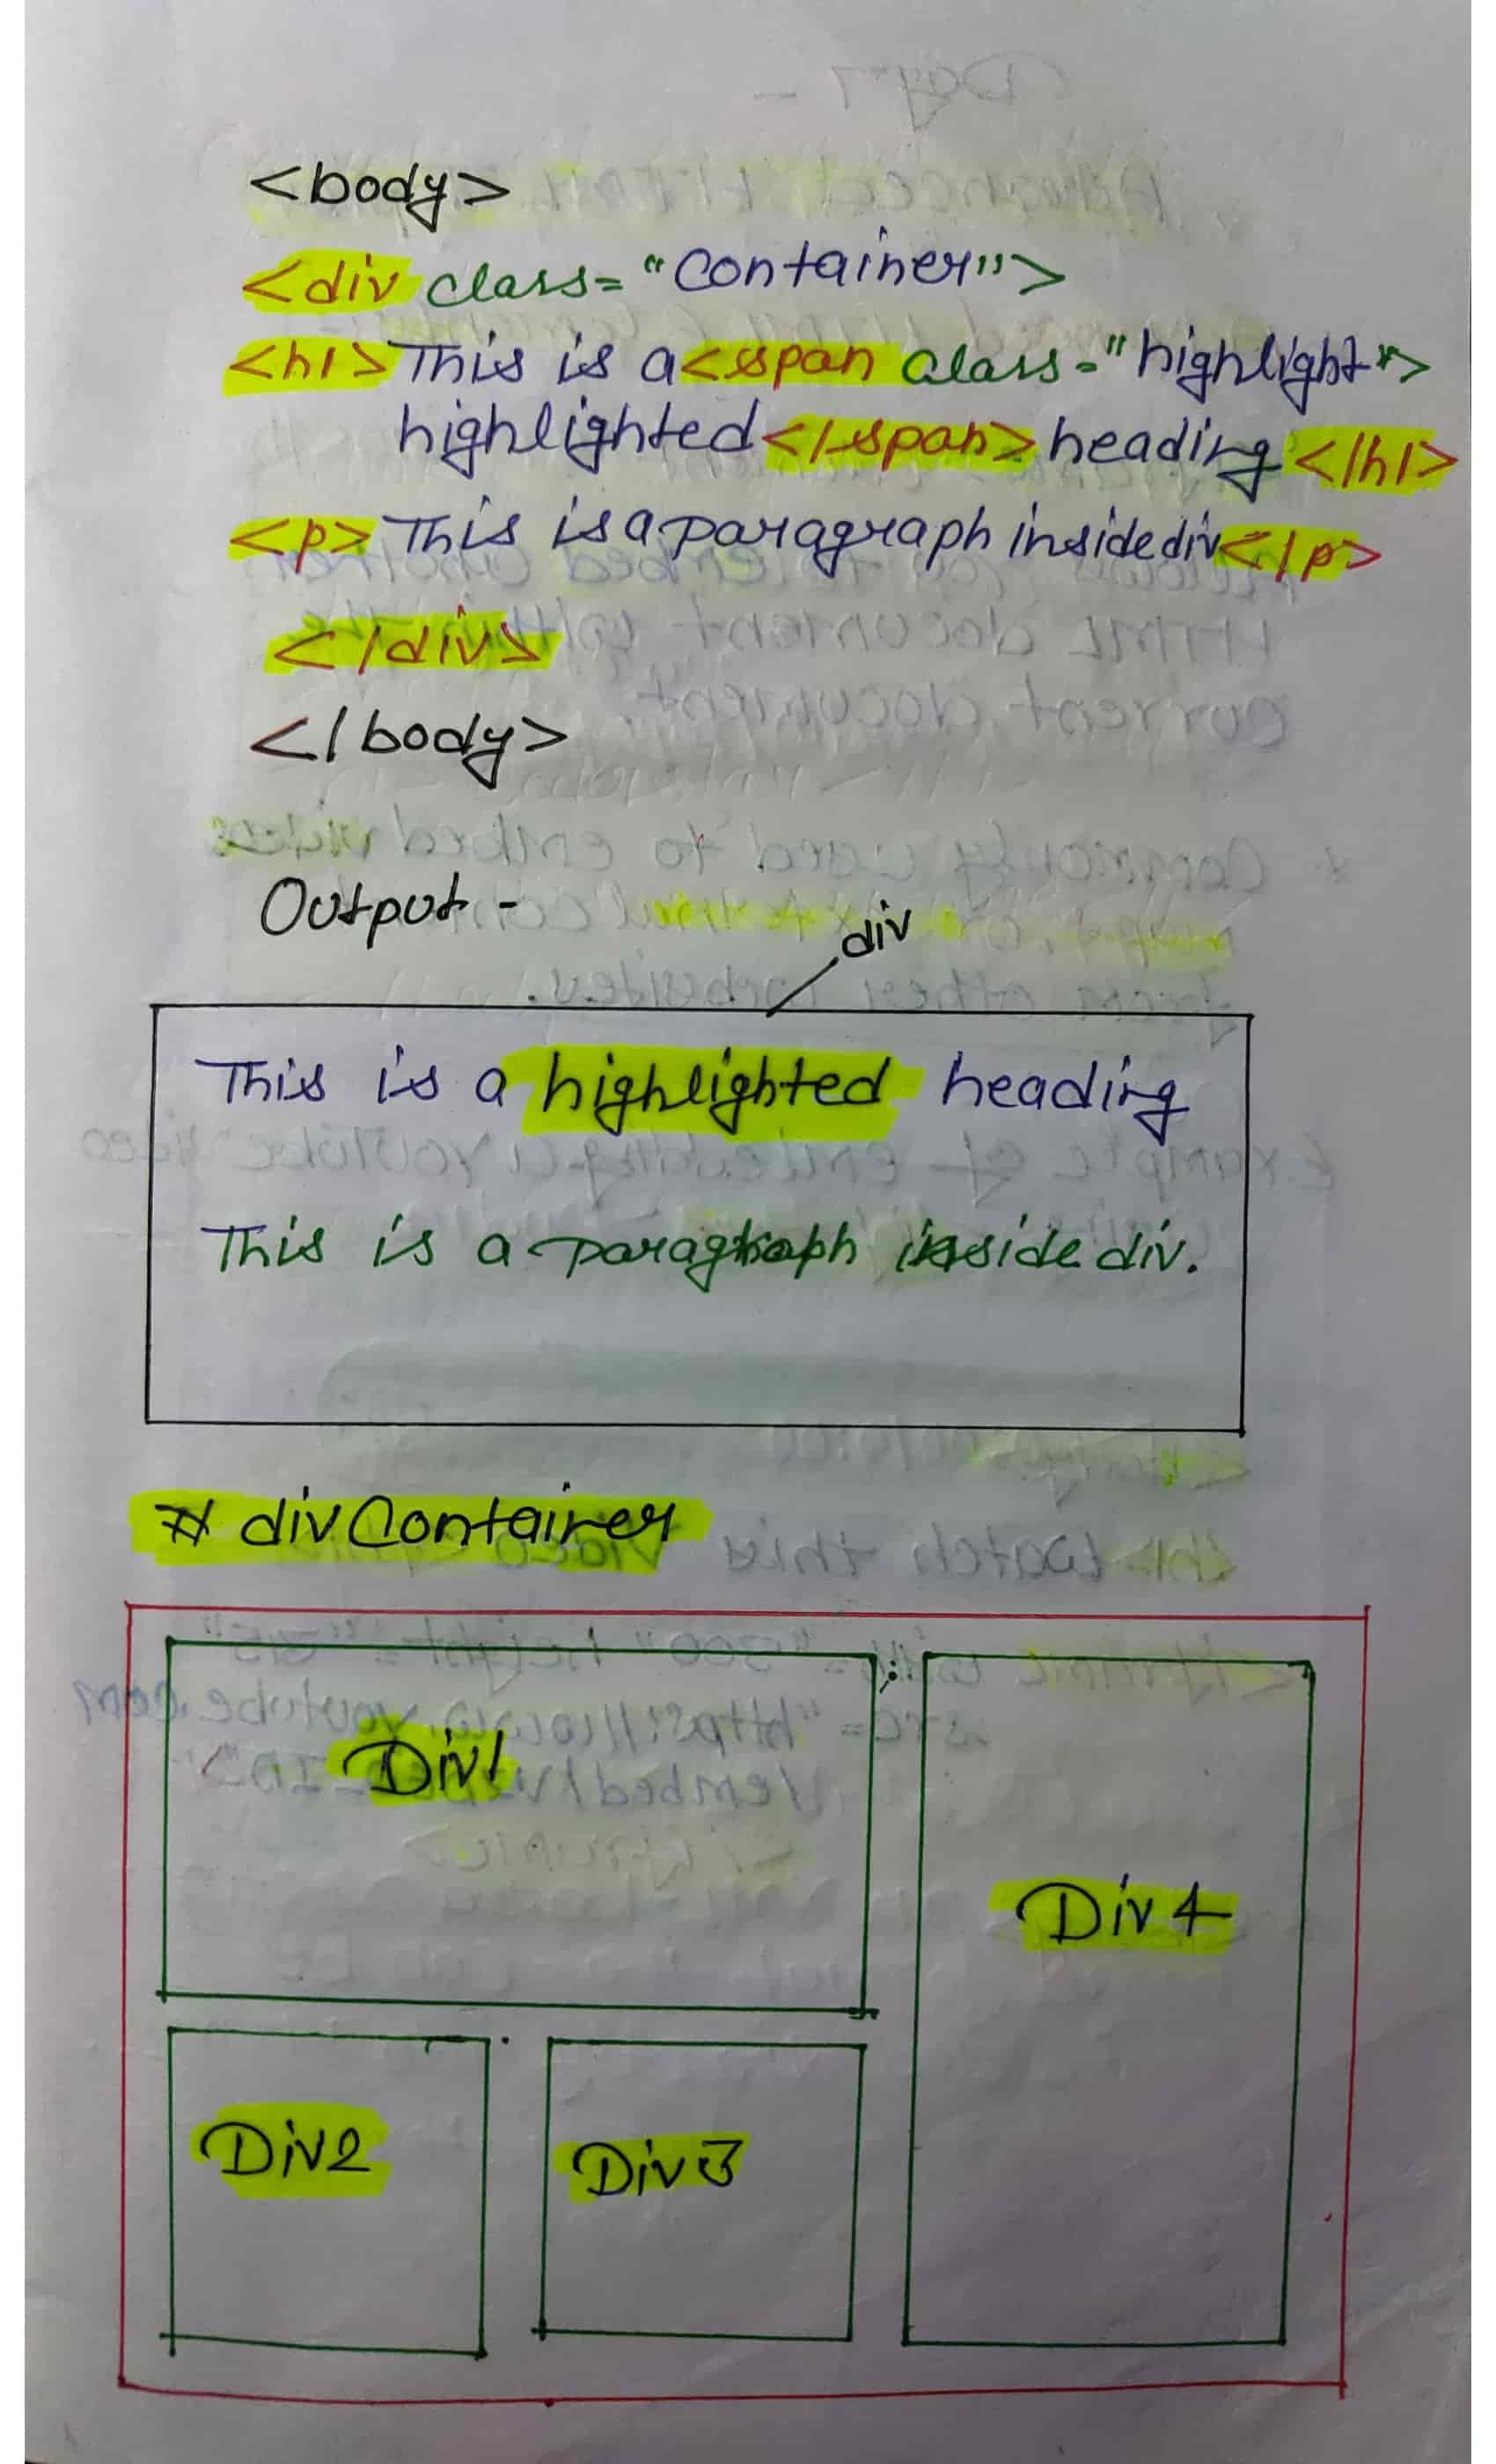 <body>
<div class="Container">
<h1>This is a <span class="highlight">
highlighted</span> heading </h1>
<p> This is a paragraph inside div</p>
</div>
</body>
Output -
div
This is a highlighted heading
This is a paragraph inside div.
# div Container
Div1
Div 4
Div2
Div 3